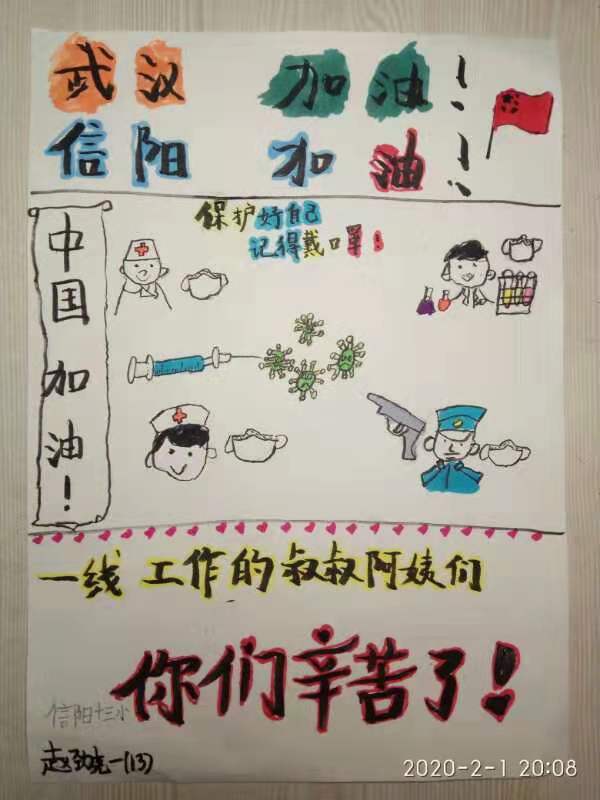 武汉 加油!
信阳 加油!
保护好自己
记得戴口罩!
中国加油!
一线工作的叔叔阿姨们
你们辛苦了!
信阳十三小
一(13)
2020-2-1 20:08